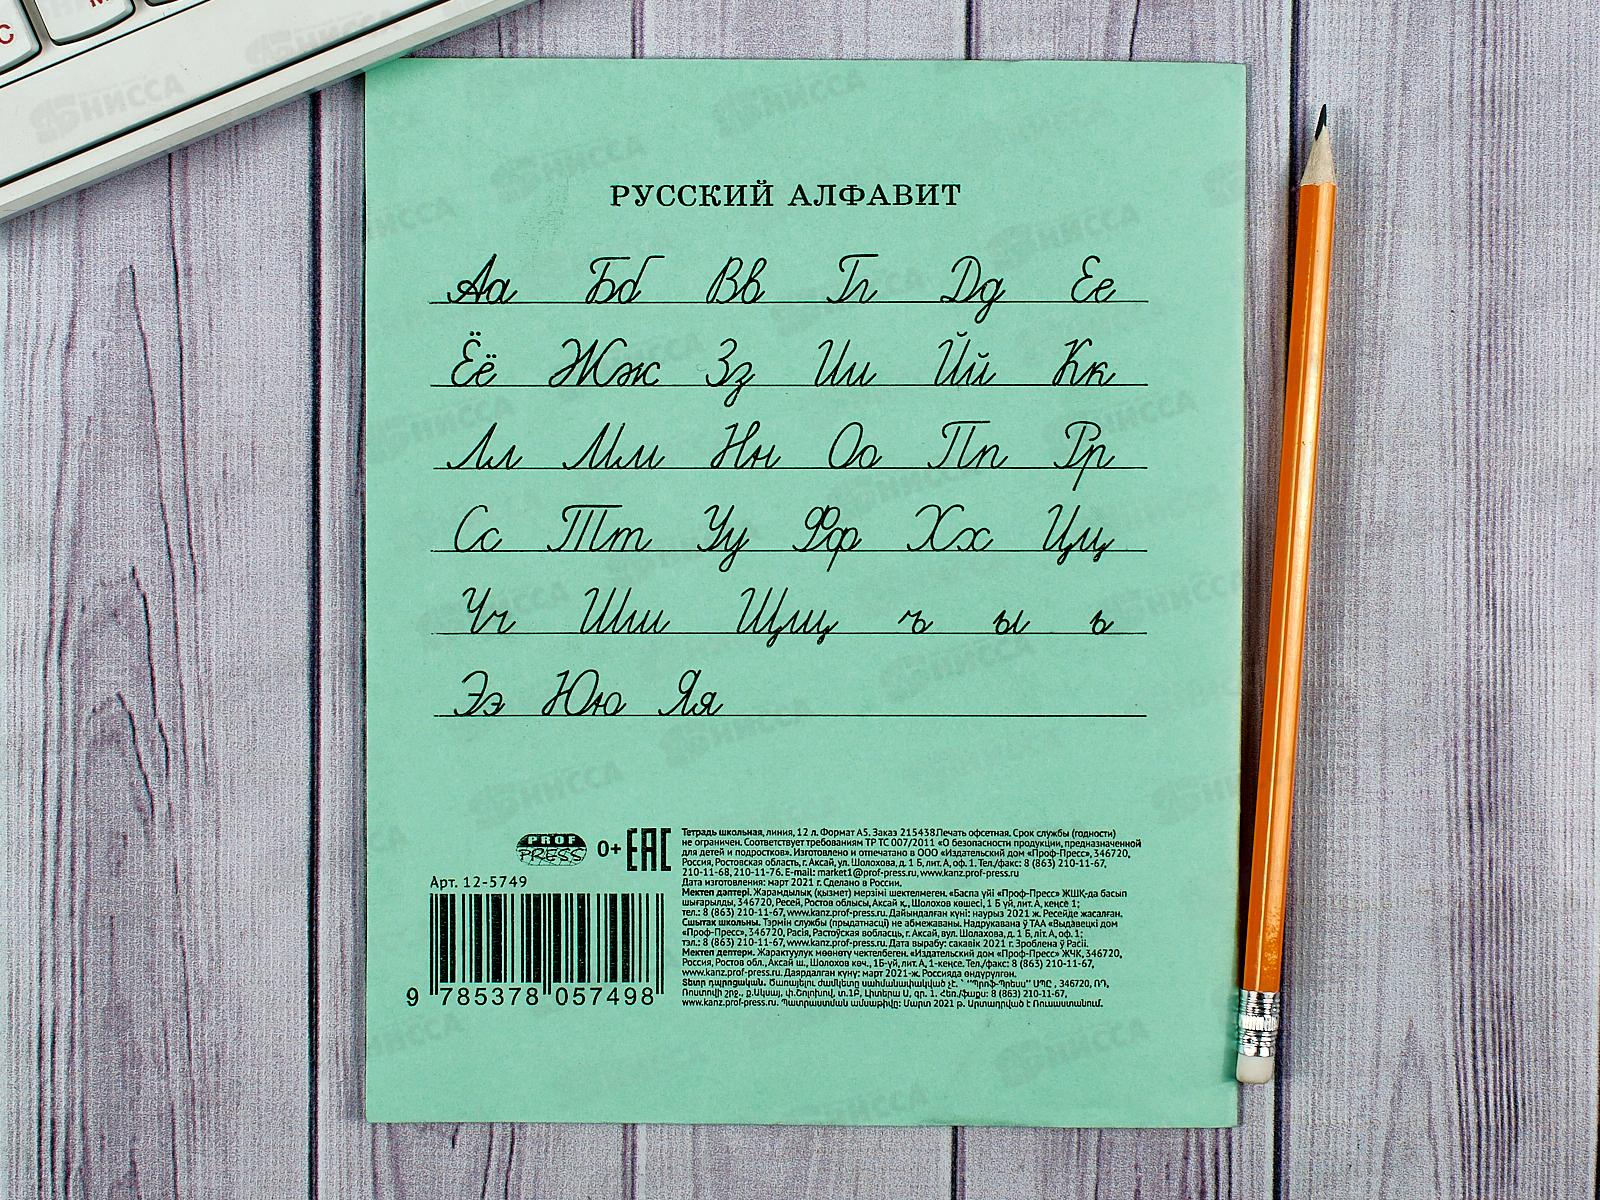 РУССКИЙ АЛФАВИТ
Аа Бб Вв Гг Дд Ее
Ёё Жж Зз Ии Йй Кк
Лл Мм Нн Оо Пп Рр
Сс Тт Уу Фф Хх Цц
Чч Шш Щщ ъ ы ь
Ээ Юю Яя
PROF PRESS 0+ EAC
Арт. 12-5749
9 785378 057498
Тетрадь школьная, линия, 12 л. Формат А5. Заказ 215438.Печать офсетная. Срок службы (годности)
не ограничен. Соответствует требованиям ТР ТС 007/2011 «О безопасности продукции, предназначенной
для детей и подростков». Изготовлено и отпечатано в ООО «Издательский дом «Проф-Пресс», 346720,
Россия, Ростовская область, г. Аксай, ул. Шолохова, д. 1 Б, лит. А, оф. 1. Тел./факс: 8 (863) 210-11-67,
210-11-68, 210-11-76. E-mail: market1@prof-press.ru, www.kanz.prof-press.ru
Дата изготовления: март 2021 г. Сделано в России.
Мектеп дәптері. Жарамдылық (қызмет) мерзімі шектелмеген. «Баспа үйі «Проф-Пресс» ЖШҚ-да басып
шығарылды, 346720, Ресей, Ростов облысы, Аксай қ., Шолохов көшесі, 1 Б үй, лит. А, кеңсе 1;
тел.: 8 (863) 210-11-67, www.kanz.prof-press.ru. Дайындалған күні: наурыз 2021 ж. Ресейде жасалған.
Сшытак школьны. Тэрмін службы (прыдатнасці) не абмежаваны. Надрукавана ў ТАА «Выдавецкі дом
«Проф-Прэс», 346720, Расія, Растоўская вобласць, г. Аксай, вул. Шолахова, д. 1 Б, літ. А, оф. 1;
тэл.: 8 (863) 210-11-67, www.kanz.prof-press.ru. Дата вырабу: сакавік 2021 г. Зроблена ў Расіі.
Мектеп дептери. Жарактуулук мөөнөтү чектелбеген. «Издательский дом «Проф-Пресс» ЖЧК, 346720,
Россия, Ростов обл., Аксай ш., Шолохов көч., 1Б-үй, лит. А, 1-кеңсе. Тел./факс: 8 (863) 210-11-67,
www.kanz.prof-press.ru. Даярдалган күнү: март 2021-ж. Россияда өндүрүлгөн.
Տետր դպրոցական. Ծառայելու ժամկետը սահմանափակված չէ. 346720, ՌԴ,
8 (863) 210-11-67,
www.kanz.prof-press.ru. Պատրաստման ամսաթիվը: Մարտ 2021 թ. Արտադրված է Ռուսաստանում.
НИССА